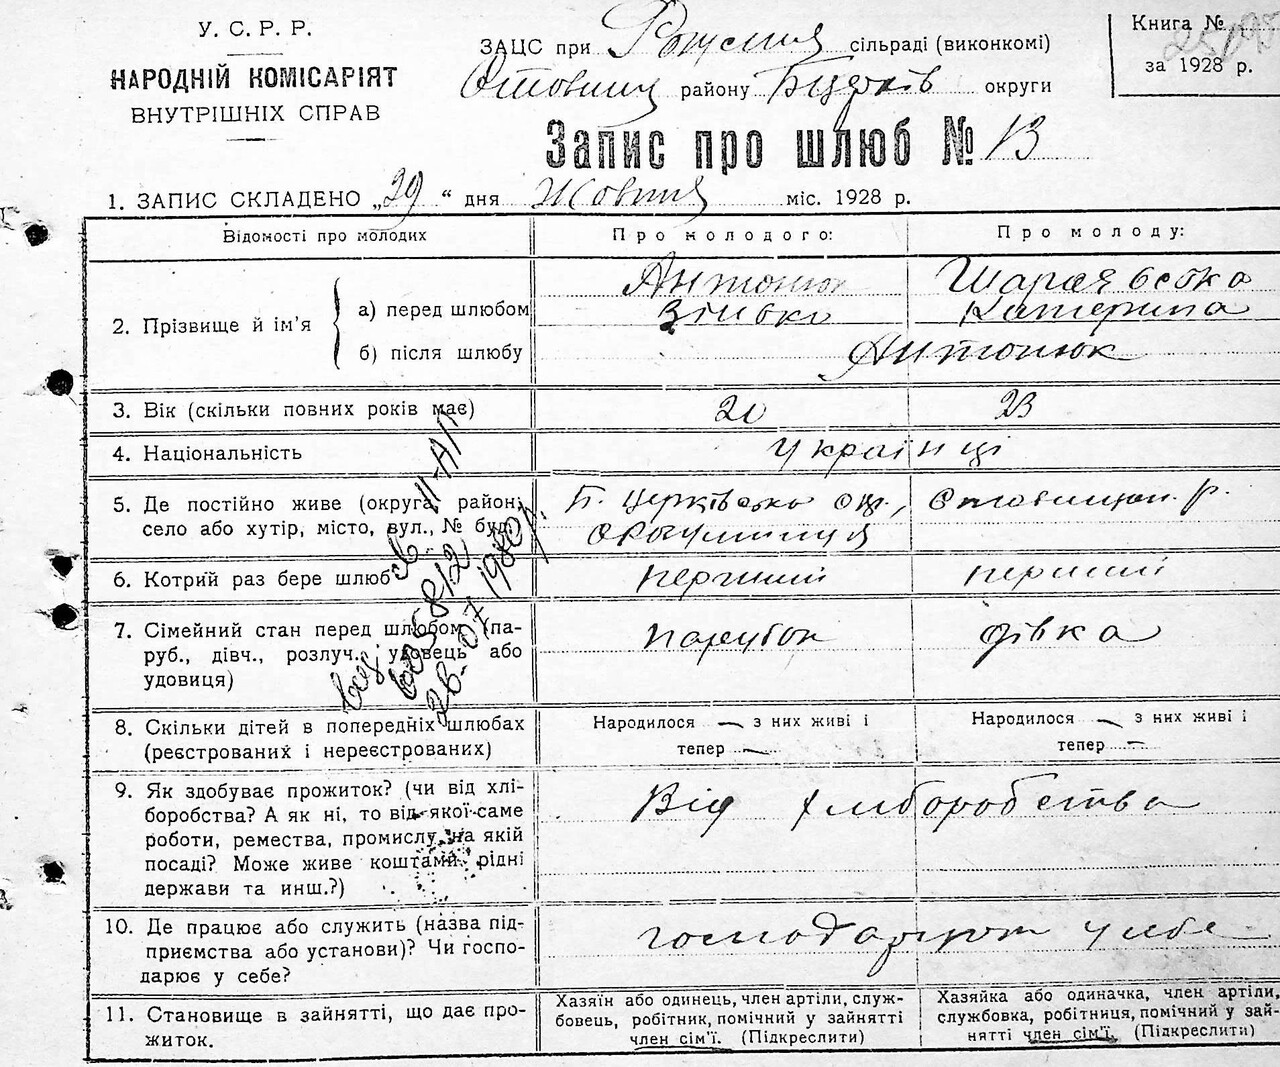 У. С. Р. Р.
НАРОДНІЙ КОМІСАРІЯТ
ВНУТРІШНІХ СПРАВ
ЗАЦС при сільраді (виконкомі)
району Б Церків округи
Книга №
за 1928 р.
Запис про шлюб № 13
1. ЗАПИС СКЛАДЕНО „29“ дня Жовтня міс. 1928 р.
Відомості про молодих
Про молодого:
Про молоду:
2. Прізвище й ім'я
а) перед шлюбом
Антонюк
Катерина
б) після шлюбу
Антонюк
3. Вік (скільки повних років має)
20
23
4. Національність
Українці
5. Де постійно живе (округа, район,
село або хутір, місто, вул., № буд.
Б. Церківсько окр.,
р.
6. Котрий раз бере шлюб
перший
перший
7. Сімейний стан перед шлюбом (па-
руб., дівч., розлуч., удовець або
удовиця)
парубок
дівка
28.07.1980 р.
8. Скільки дітей в попередніх шлюбах
(реєстрованих і нереєстрованих)
Народилося — з них живі і
тепер —
Народилося — з них живі і
тепер —
9. Як здобуває прожиток? (чи від хлі-
боробства? А як ні, то від якої саме
роботи, ремества, промислу, на якій
посаді? Може живе коштами рідні
держави та инш.?)
Від хліборобства
10. Де працює або служить (назва під-
приємства або установи)? Чи госпо-
дарює у себе?
у себе
11. Становище в зайнятті, що дає про-
житок.
Хазяїн або одинець, член артіли, служ-
бовець, робітник, помічний у зайнятті
член сім'ї. (Підкреслити)
Хазяйка або одиначка, член артіли,
службовка, робітниця, помічний у зай-
нятті член сім'ї. (Підкреслити)